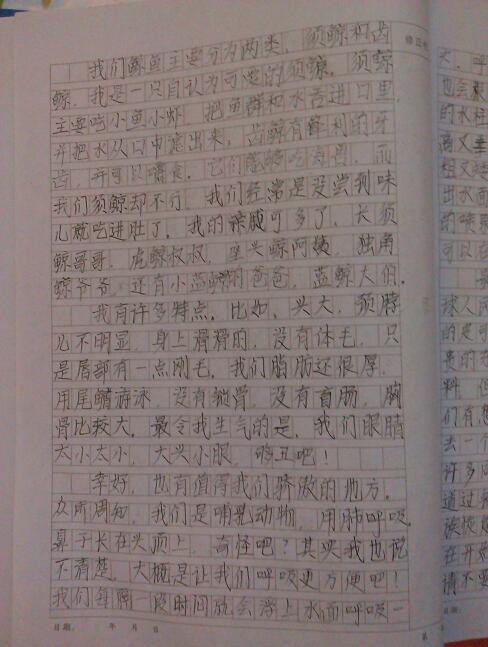 修正
我们鲸鱼主要分为两类,须鲸和齿
鲸。我是一只自认为可爱的须鲸。须鲸
主要吃小鱼小虾,把鱼群和水吞进口里,
并把水从口中滤出来,齿鲸有锋利的牙
齿,并可以嚼食。它们吃海兽。而
我们须鲸却不行。我们经常是没尝到味
儿就吃进肚了。我的亲戚可多了,长须
鲸哥哥,虎鲸叔叔,坐头鲸阿姨,独角
鲸爷爷,还有小蓝鲸的爸爸,蓝鲸大伯。
我有许多特点。比如,头大,颈脖
儿不明显,身上滑滑的,没有体毛,只
是唇部有一点刚毛。我们脂肪还很厚,
用尾鳍游泳,没有锁骨,没有盲肠,胸
骨比较大。最令我生气的是,我们眼睛
太小太小,大头小眼,够丑吧!
幸好,也有值得我们骄傲的地方。
众所周知,我们是哺乳动物,用肺呼吸。
鼻子长在头顶上,奇怪吧?其实我也说
不清楚,大概是让我们呼吸更方便吧!
我们每隔一段时间就会浮上水面呼吸一
日期: 年 月 日
第
也会
的水柱
高又
粗又
出水面
的喷
可以在
球人民
的是可
贵的
料,但
们有
去一个
许多
通过
族
在开始
请不要
日期: